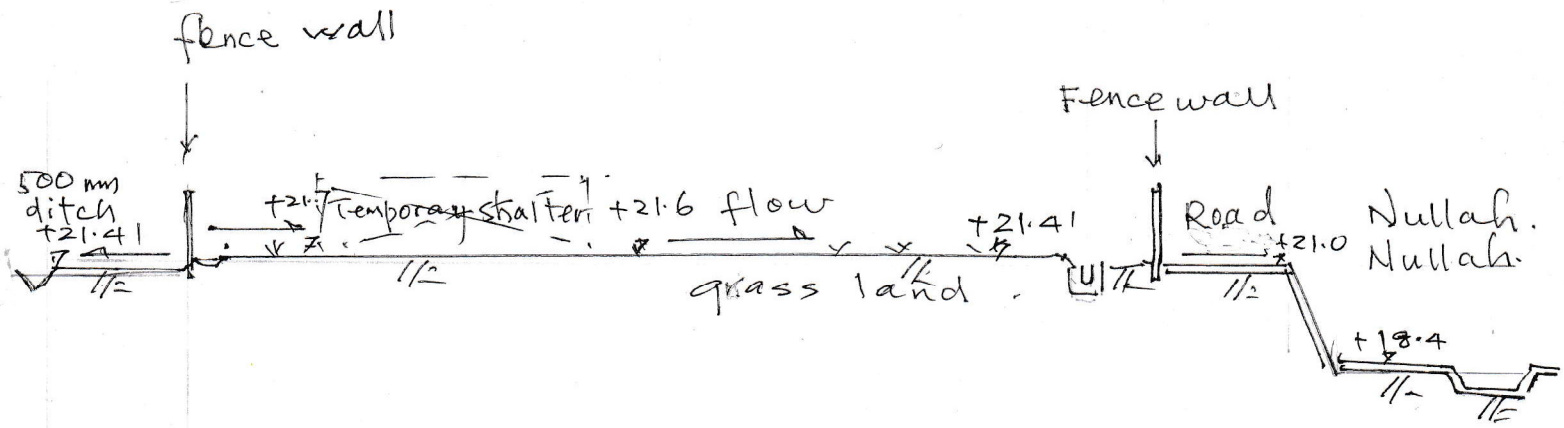 fence wall
Fence wall
500 mm
ditch
+21.41
+21.7
Temporay shalter
+21.6 flow
+21.41
Road
+21.0
Nullah.
Nullah.
grass land.
U
+18.4